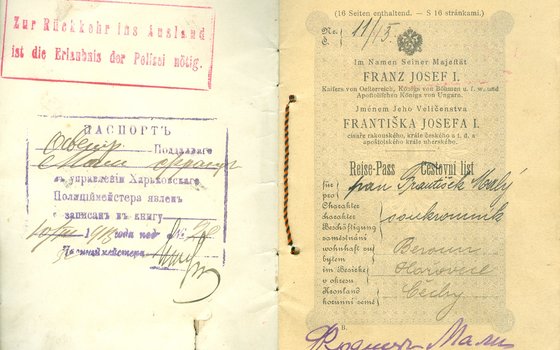 Zur Rückkehr ins Ausland
ist die Erlaubnis der Polizei nötig.
ПАСПОРТЪ
Подданнаго
въ управленіи Харьковскаго
Полиціймейстера явленъ
записанъ въ книгу
года подъ №
Полиціймейстера
(16 Seiten enthaltend. — S 16 stránkami.)
No. 11/15.
č.
Im Namen Seiner Majestät
FRANZ JOSEF I.
Kaisers von Oesterreich, Königs von Böhmen u. s. w. und
Apostolischen Königs von Ungarn.
Jménem Jeho Veličenstva
FRANTIŠKA JOSEFA I.
císaře rakouského, krále českého a t. d. a
apoštolského krále uherského.
Reise-Pass Cestovní list
für pan František Malý
pro
Charakter
charakter soukromník
Beschäftigung
zaměstnání
wohnhaft zu Beroun
bytem
im Bezirke Hořovice
v okresu
Kronland Čechy
korunní země
B.
Мали